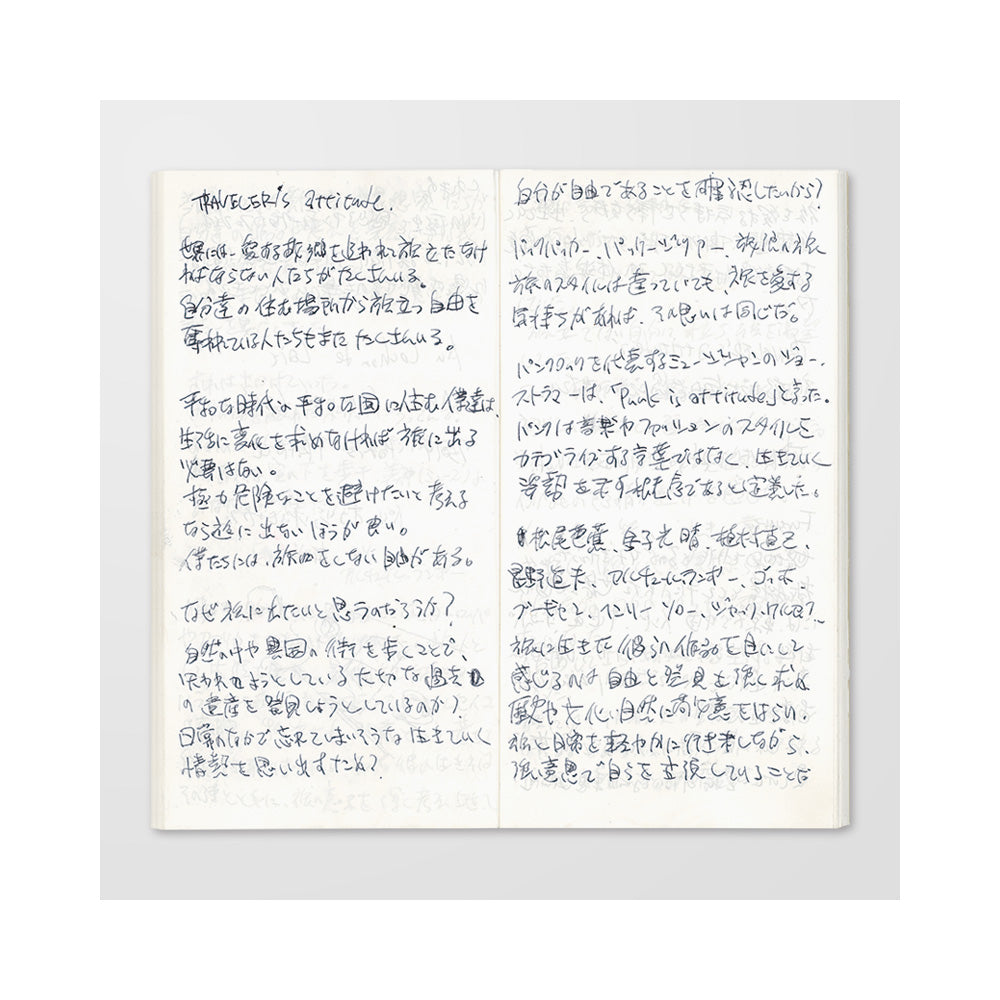 TRAVELER's attitude.
世界には、愛する故郷を追われて旅立たなけ
ればならない人たちがたくさんいる。
自分達の住む場所から旅立つ自由を
奪われている人たちもまたたくさんいる。
平和な時代の平和な国に住む僕達は、
生活に変化を求めなければ旅に出る
必要はない。
極力危険なことを避けたいと考える
なら旅に出ないほうが良い。
僕たちには、旅をしない自由がある。
なぜ旅に出たいと思うのだろうか?
自然の中や異国の街を歩くことで、
失われようとしている大切な過去
の遺産を発見しようとしているのか?
日常のなかで忘れてしまいそうな生きていく
情熱を思い出すため?
自分が自由であることを確認したいから?
バックパッカー、パッケージツアー、放浪の旅
旅のスタイルは違っていても、旅を愛する
気持ちがあれば、その思いは同じだ。
パンクロックを代表するミュージシャンのジョー・
ストラマーは、「Punk is attitude」と言った。
パンクは音楽やファッションのスタイルを
カテゴライズする言葉ではなく、生きていく
姿勢を示す概念であると定義した。
松尾芭蕉、金子光晴、植村直己、
星野道夫、アルチュールランボー、ゴッホ、
ゴーギャン、ヘンリー・ソロー、ジャック・ケルアック…
旅に生きた彼らの作品を目にして
感じるのは自由と発見を強く求め
歴史や文化、自然に敬意をはらい、
旅と日常を軽やかに行き来しながら、
強い意思で自らを主張していることだ